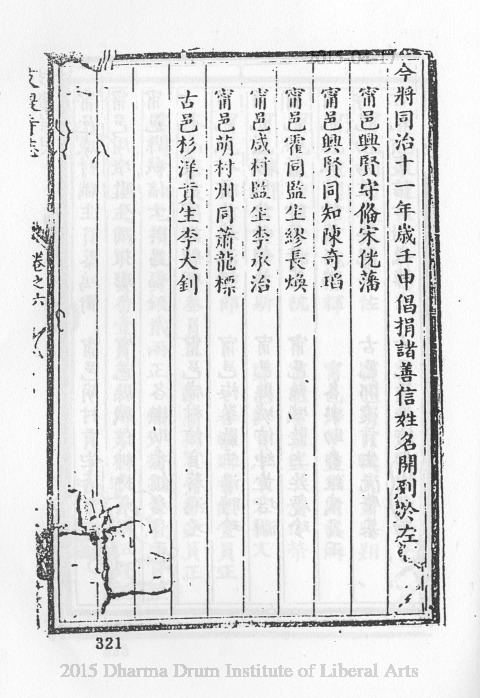 今將同治十一年歲壬申倡捐諸善信姓名開列於左
甯邑興賢守俻宋侊藩
甯邑興賢同知陳奇瑫
甯邑霍同監生繆長煥
甯邑咸村監生李承治
甯邑萌村州同蕭龍標
古邑杉洋貢生李大釗
卷之六
321
2015 Dharma Drum Institute of Liberal Arts